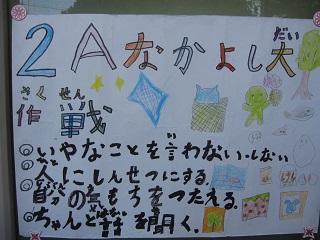 2Aなかよし大だい
作さく戦せん
○いやなことを言いわない・しない
○人にしんせつにする。
○自分の気もちをつたえる。
○ちゃんと話はなしを聞く。